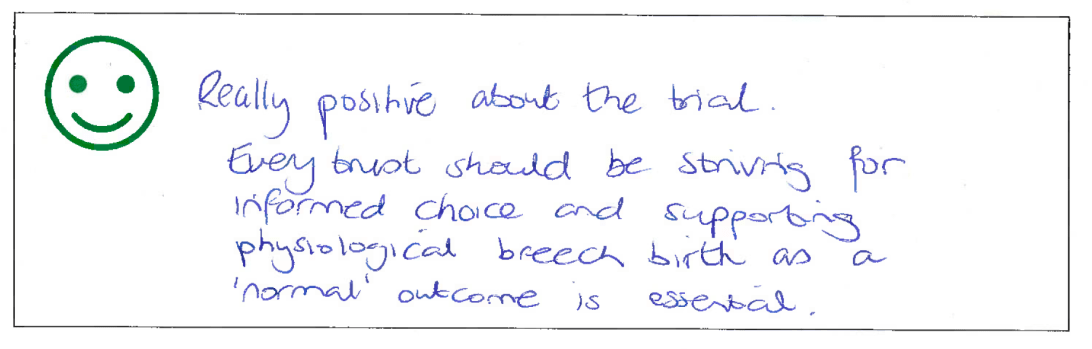 Really positive about the trial.
Every trust should be striving for
informed choice and supporting
physiological breech birth as a
'normal' outcome is essential.